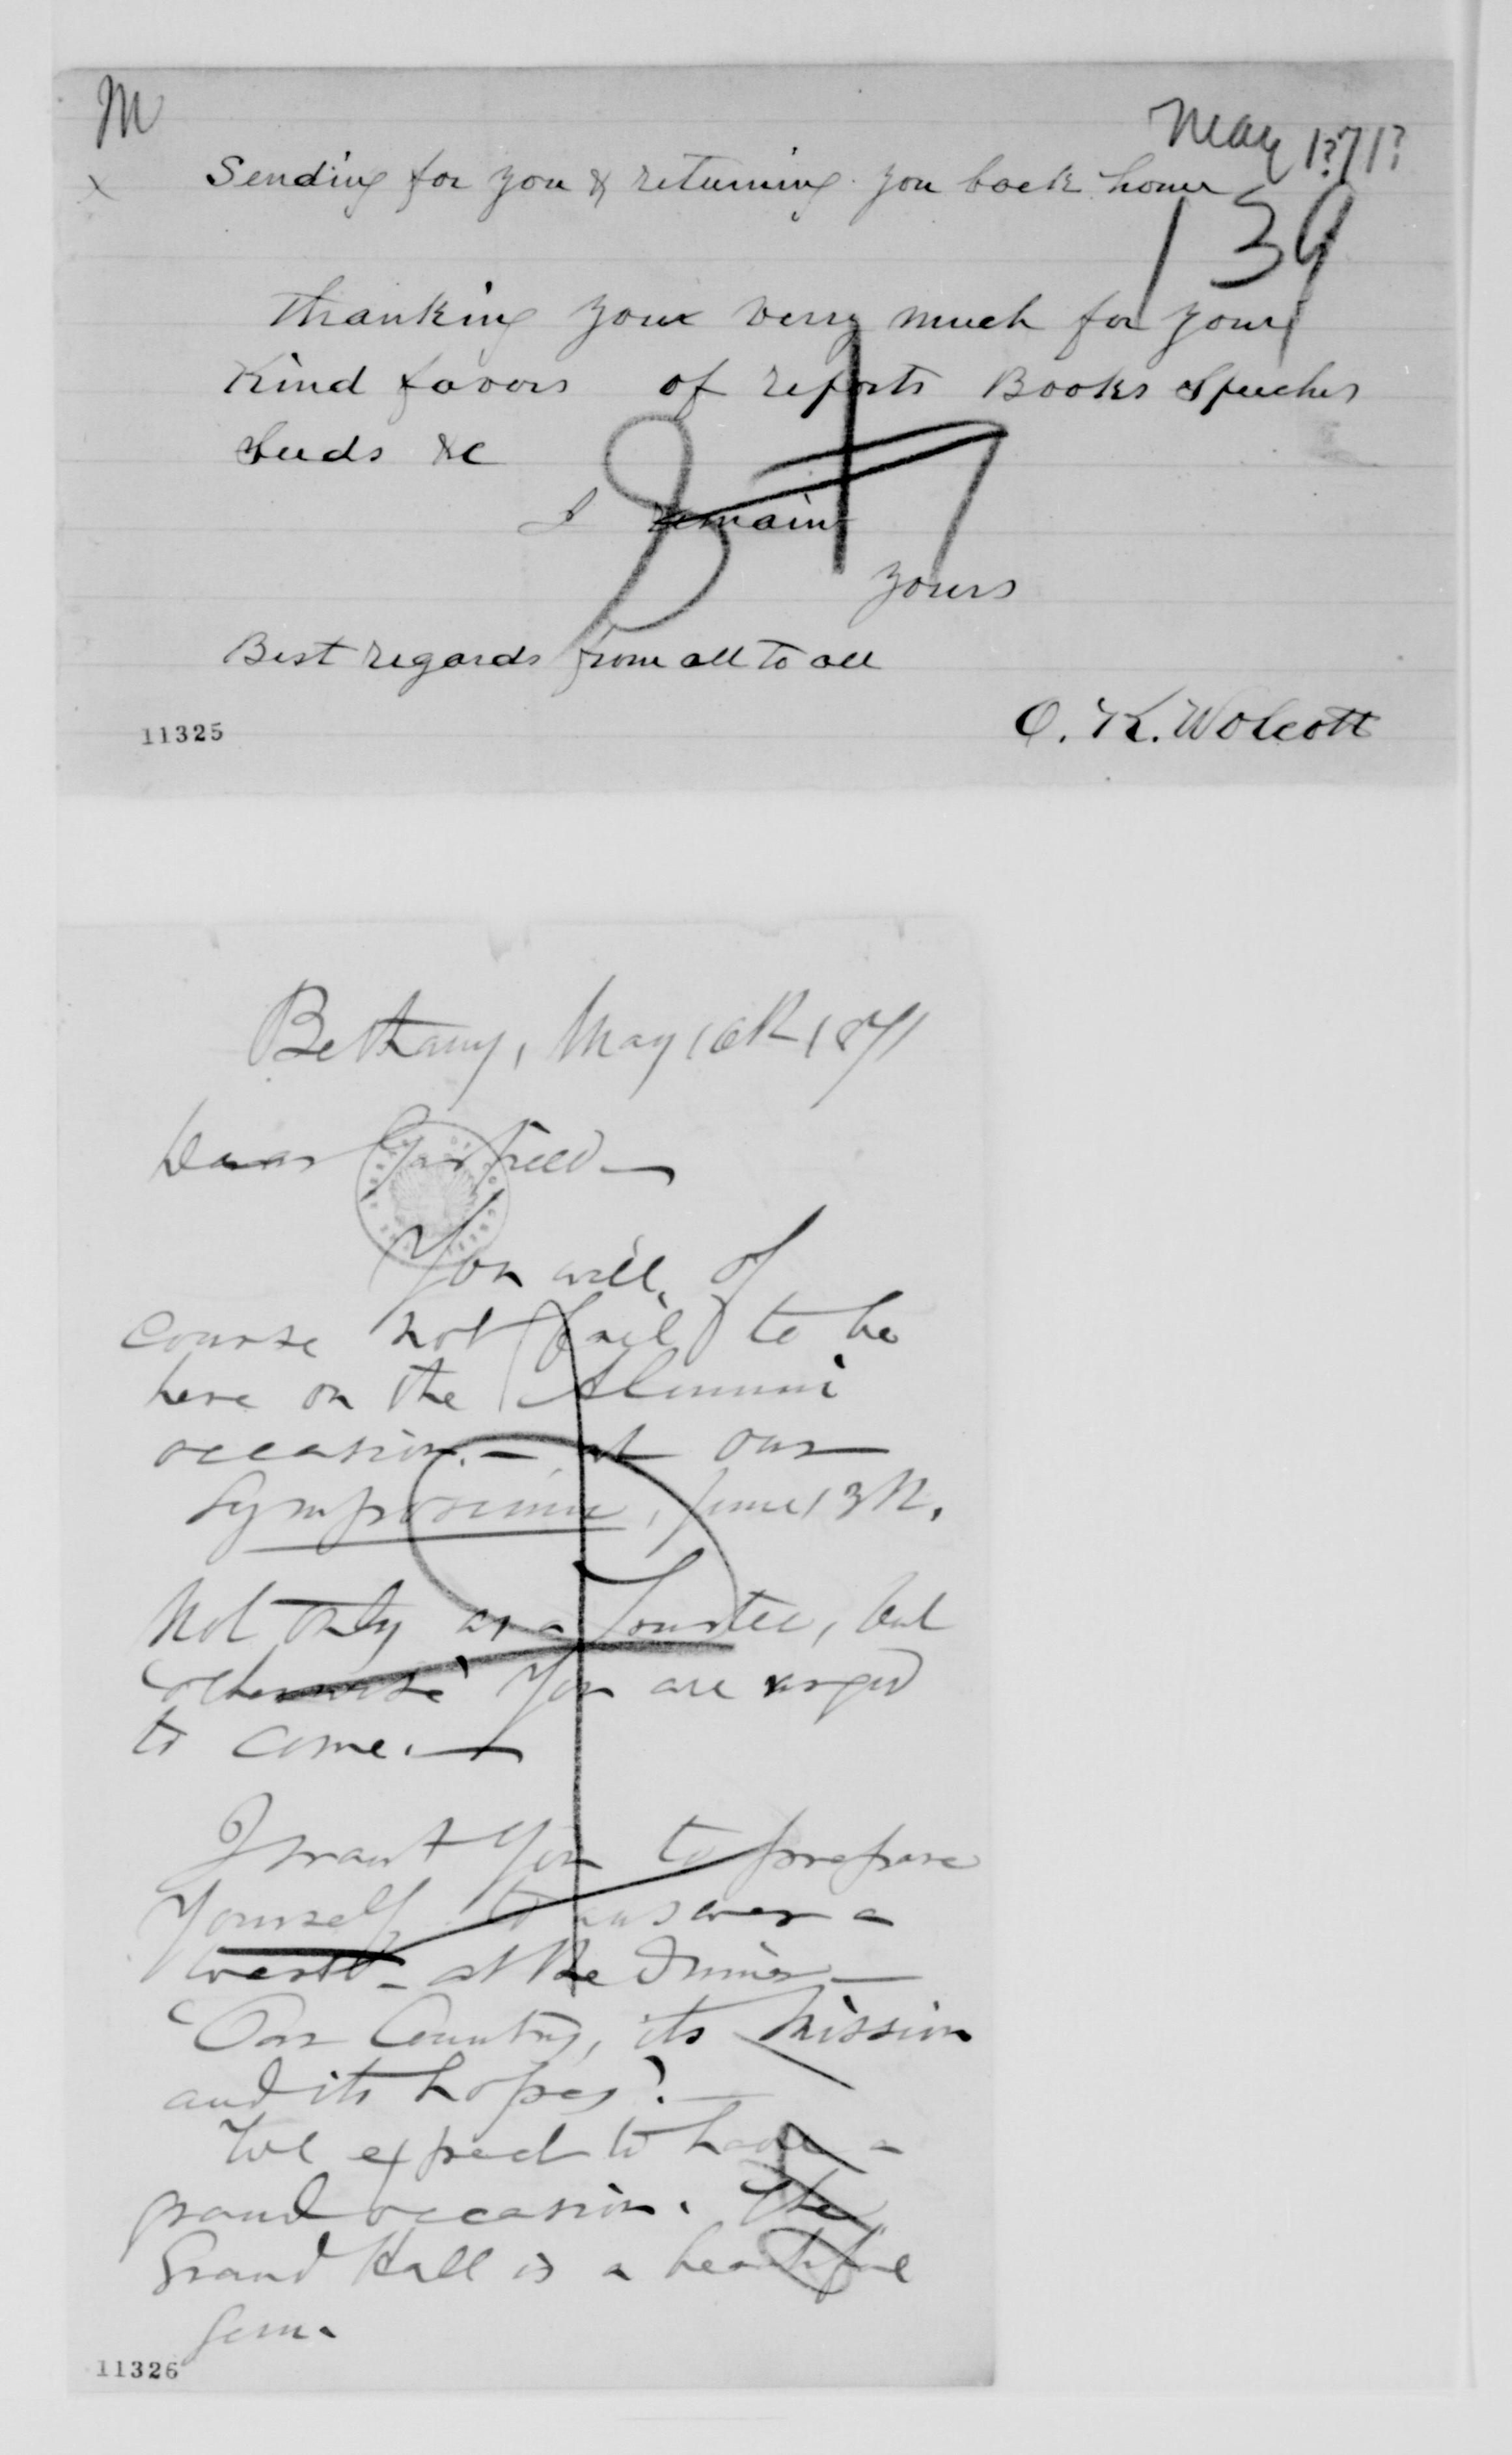 M
May 1?71?
x
Sending for you & returning you back home
139
thanking you very much for your
Kind favors of reports Books Speeches
Seeds &c
I remain
yours
Best regards from all to all
O. K. Wolcott
11325
Bethany, May 16th 1871
Dear Garfield—
You will, of
course not fail to be
here on the Alumni
occasion.— at our
Symposium, June 13th.
Not only as a Trustee, but
"otherwise" you are urged
to come.—
I want you to prepare
yourself to answer a
toast— at the dinner—
"Our Country, its Mission
and its hopes".—
We expect to have a
grand occasion. The
Grand Hall is a beautiful
gem.
11326